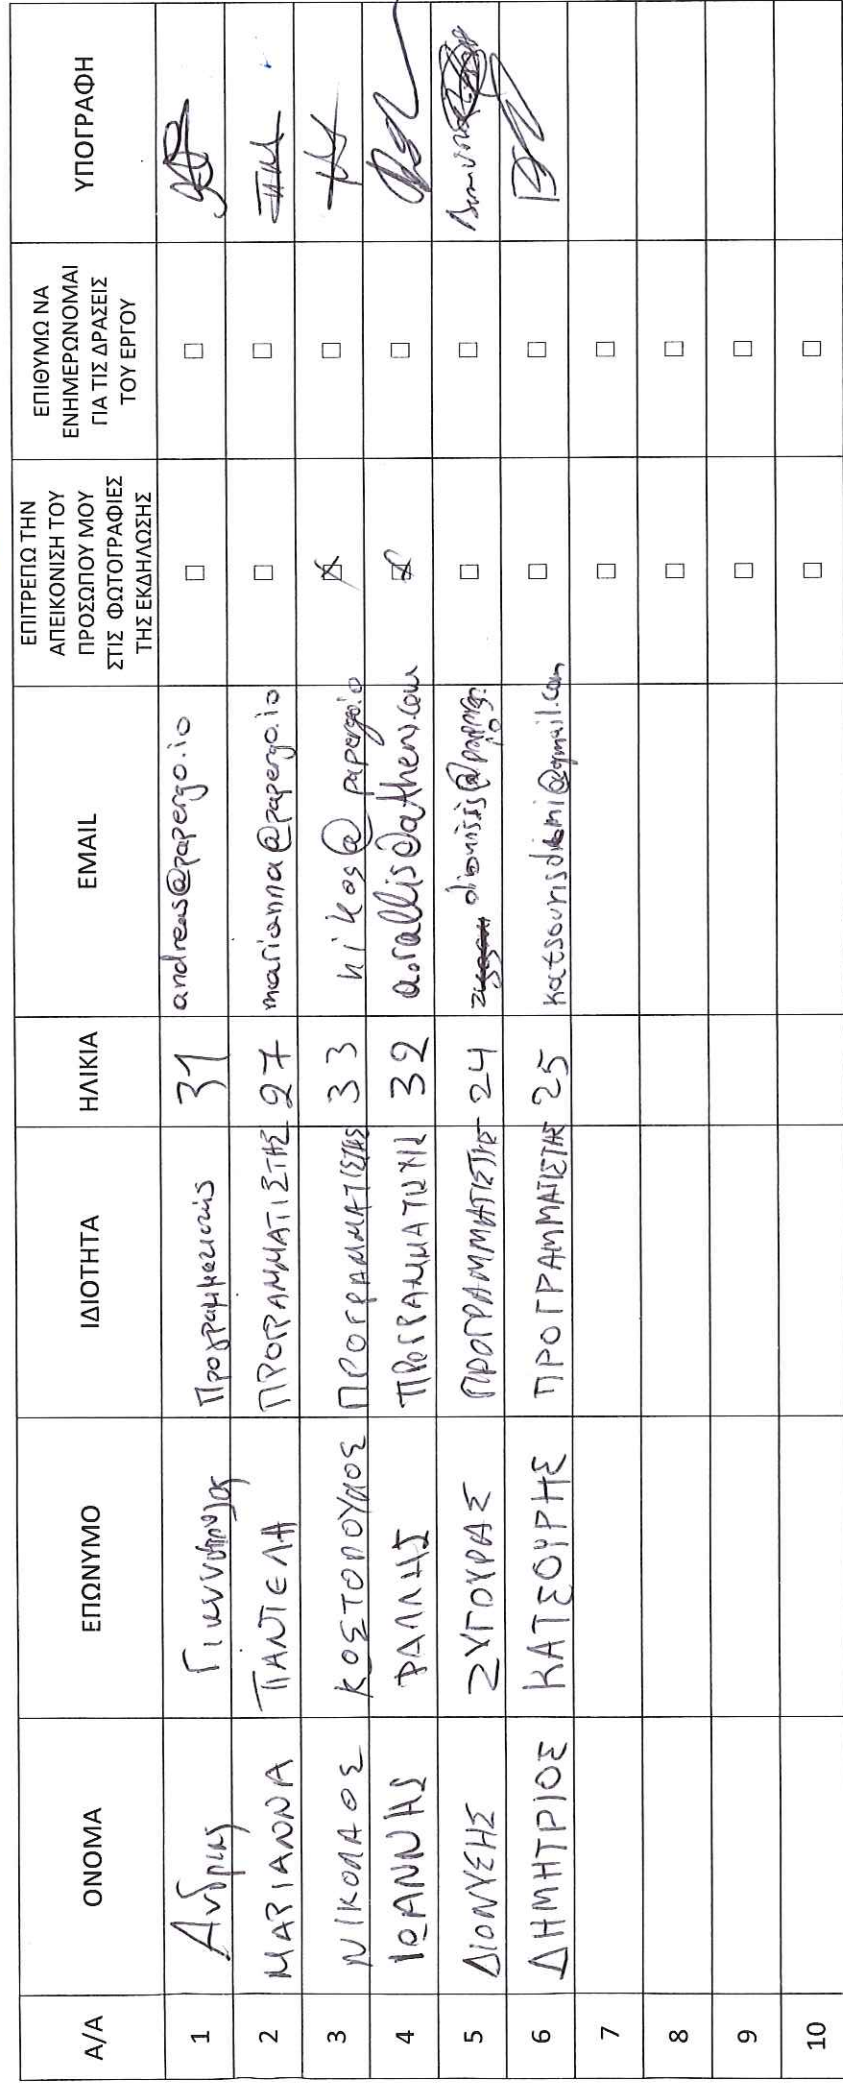 Α/Α ΟΝΟΜΑ ΕΠΩΝΥΜΟ ΙΔΙΟΤΗΤΑ ΗΛΙΚΙΑ EMAIL ΕΠΙΤΡΕΠΩ ΤΗΝ ΑΠΕΙΚΟΝΙΣΗ ΤΟΥ ΠΡΟΣΩΠΟΥ ΜΟΥ ΣΤΙΣ ΦΩΤΟΓΡΑΦΙΕΣ ΤΗΣ ΕΚΔΗΛΩΣΗΣ ΕΠΙΘΥΜΩ ΝΑ ΕΝΗΜΕΡΩΝΟΜΑΙ ΓΙΑ ΤΙΣ ΔΡΑΣΕΙΣ ΤΟΥ ΕΡΓΟΥ ΥΠΟΓΡΑΦΗ
1 Ανδρέας Γιαννόπουλος Προγραμματιστής 31 andreas@papergo.io
2 ΜΑΡΙΑΝΝΑ ΠΑΝΤΕΛΗ ΠΡΟΓΡΑΜΜΑΤΙΣΤΗΣ 27 marianna@papergo.io
3 ΝΙΚΟΛΑΟΣ ΚΟΣΤΟΠΟΥΛΟΣ ΠΡΟΓΡΑΜΜΑΤΙΣΤΗΣ 33 nikos@papergo.io
4 ΙΩΑΝΝΗΣ ΡΑΛΛΗΣ ΠΡΟΓΡΑΜΜΑΤΙΣΤΗΣ 32
5 ΔΙΟΝΥΣΗΣ ΖΥΓΟΥΡΑΣ ΠΡΟΓΡΑΜΜΑΤΙΣΤΗΣ 24 dionisis@papergo.io
6 ΔΗΜΗΤΡΙΟΣ ΚΑΤΣΟΥΡΗΣ ΠΡΟΓΡΑΜΜΑΤΙΣΤΗΣ 25
7
8
9
10